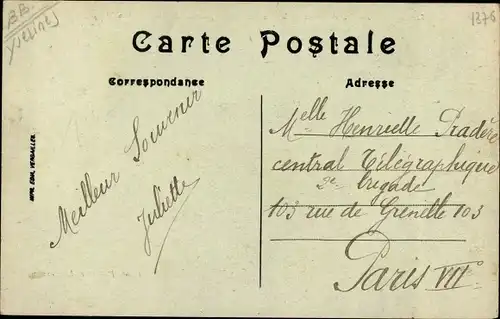 BB.
Yvelines
1376
Carte Postale
Correspondance
Adresse
Meilleur Souvenir
Juliette
Melle Henriette Pradère
central Télégraphique
2e brigade
103 rue de Grenelle 103
Paris VII°
IMP. EDIA, VERSAILLES